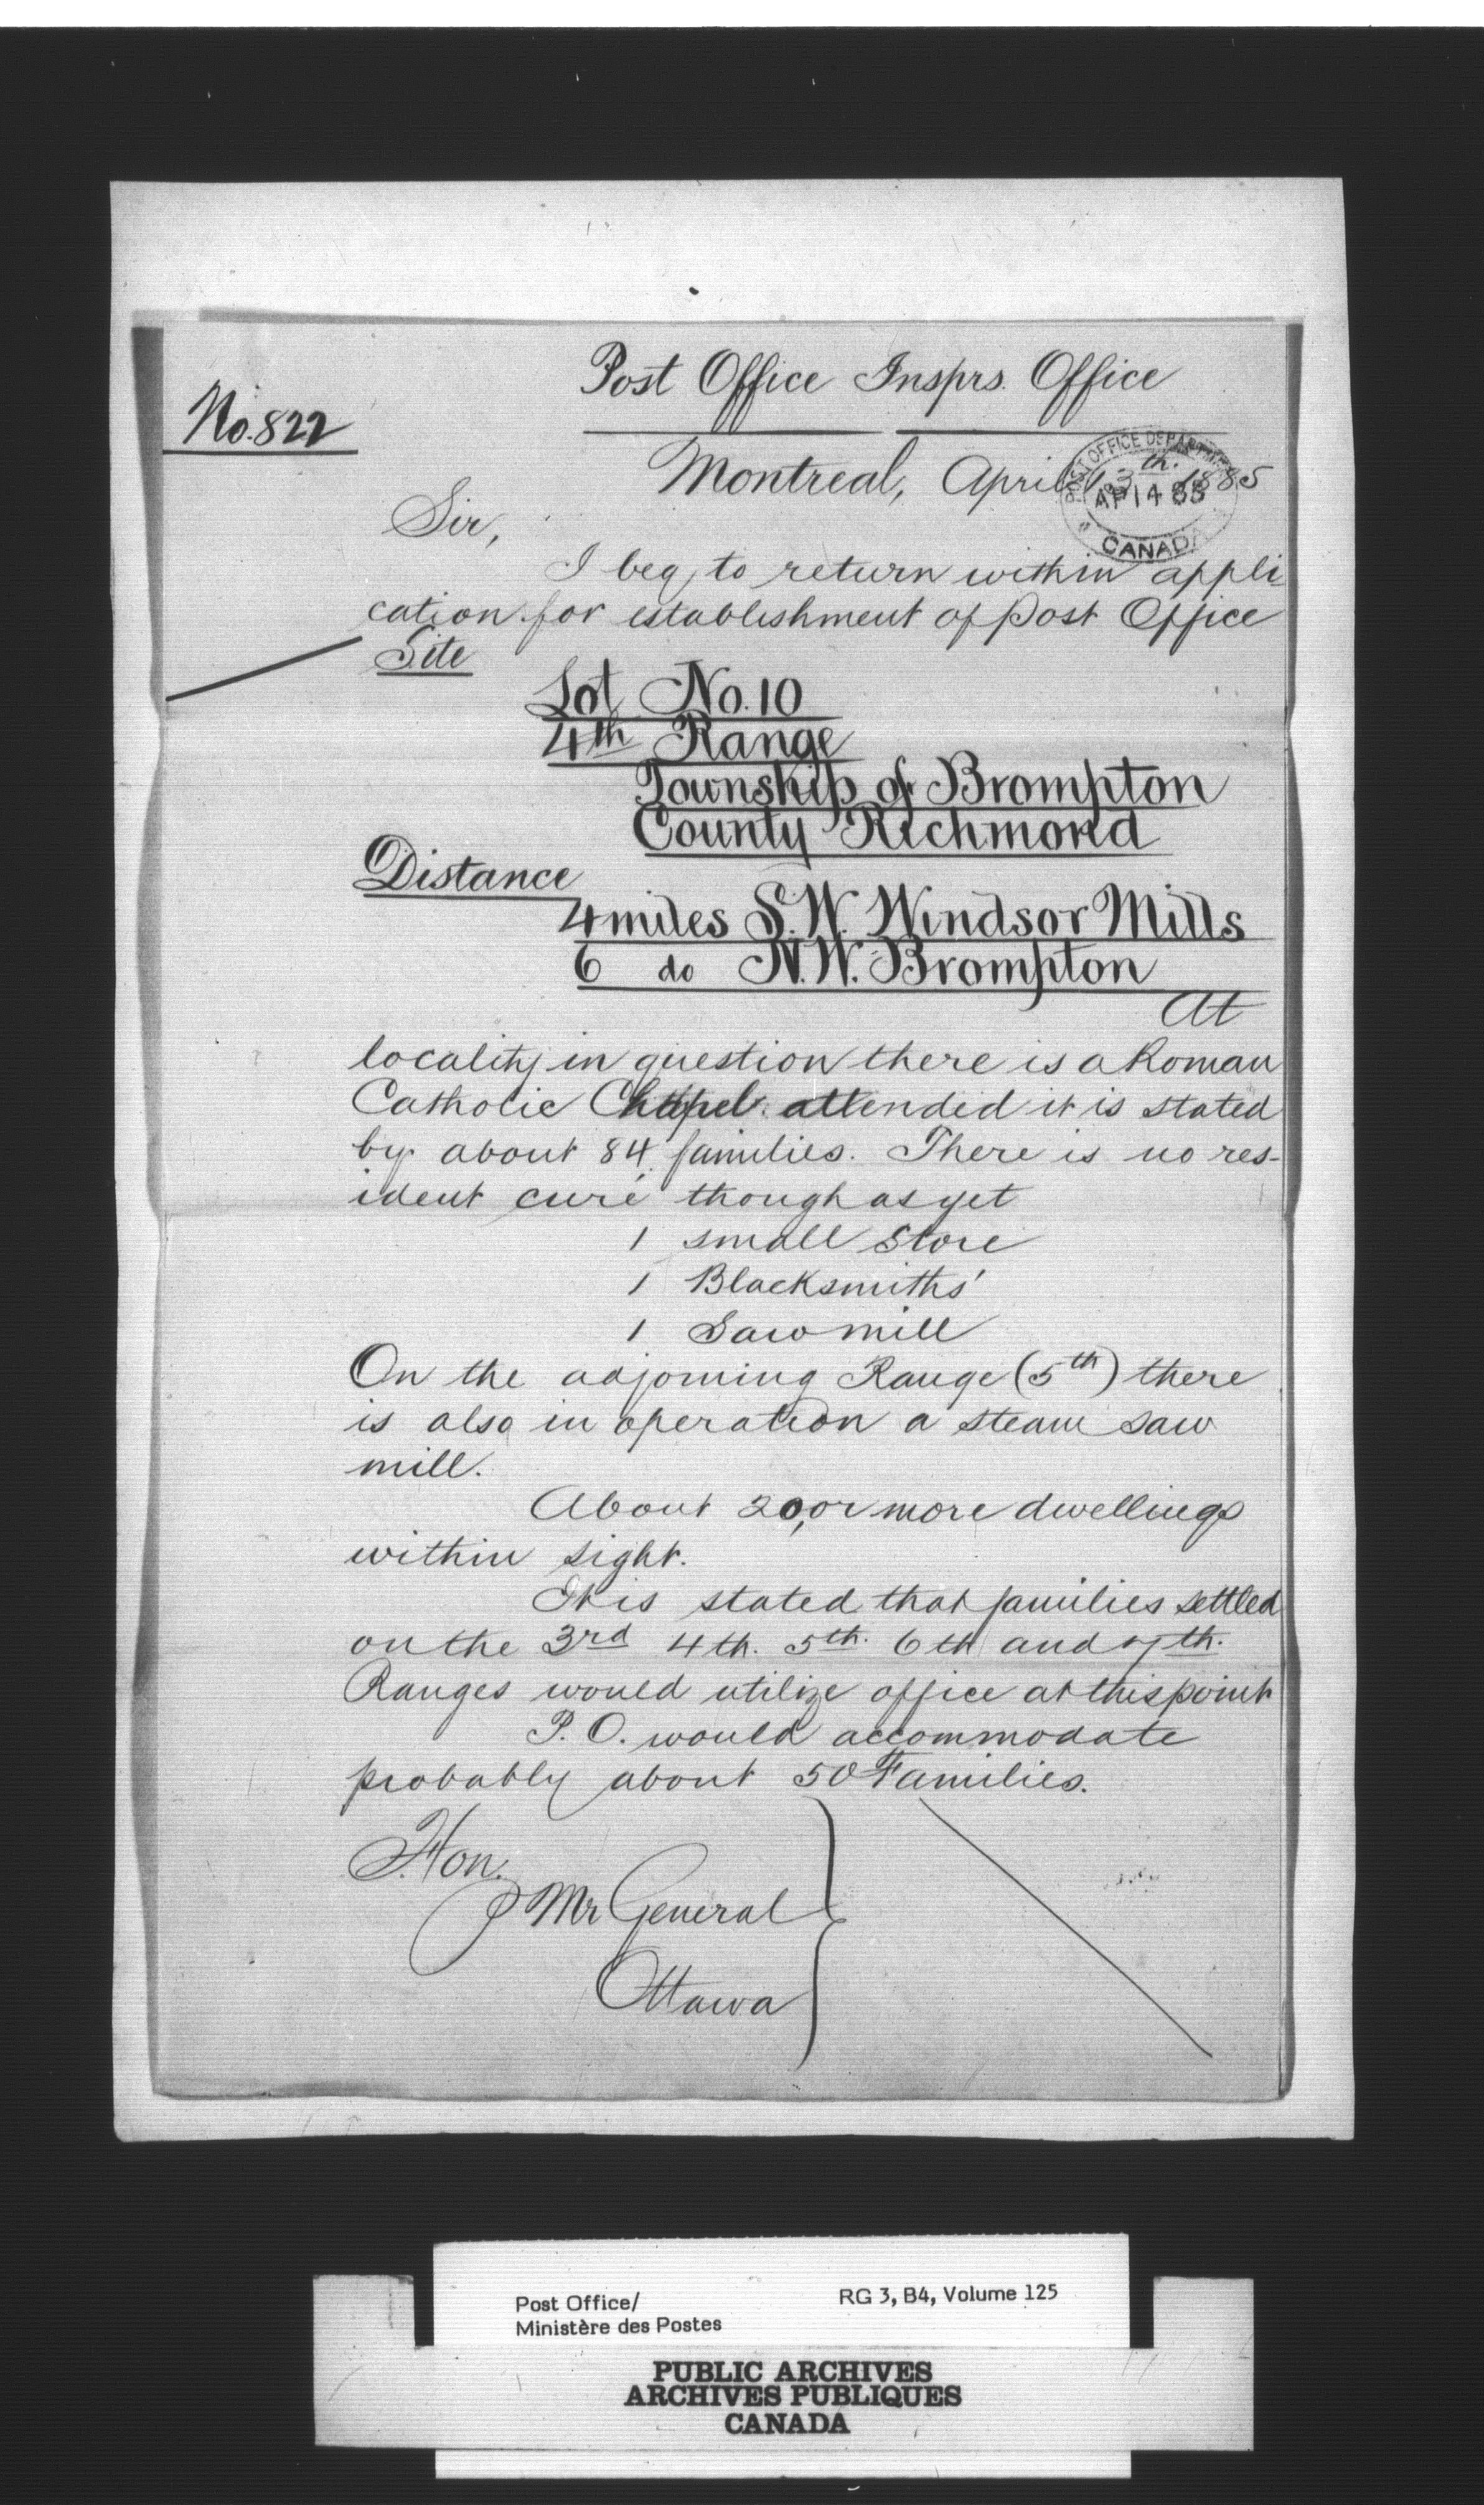 Post Office Insprs. Office
No. 822
Montreal, April 13th. 1885
POST OFFICE DEPARTMENT
AP 14 85
CANADA
Sir,
I beg to return within appli
cation for establishment of Post Office
Site
Lot No. 10
4th Range
Township of Brompton
County Richmond
Distance
4 miles S.W. Windsor Mills
6 do N.W. Brompton
At
locality in question there is a Roman
Catholic Chapel attended it is stated
by about 84 families. There is no res-
ident curé though as yet
1 small Store
1 Blacksmiths'
1 Sawmill
On the adjoining Range (5th) there
is also in operation a steam saw
mill.
About 20, or more dwellings
within sight.
It is stated that families settled
on the 3rd 4th. 5th. 6th and 7th.
Ranges would utilize office at this point
P.O. would accommodate
probably about 50 Families.
Hon.
P Mr General
Ottawa
Post Office/
Ministère des Postes
RG 3, B4, Volume 125
PUBLIC ARCHIVES
ARCHIVES PUBLIQUES
CANADA